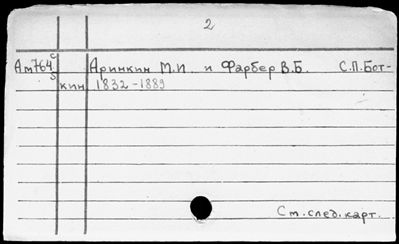 2
Ам764 с/5 Аринкин М.И. и Фарбер В.Б. С.П.Бот-
кин 1832-1889
См. след. карт.